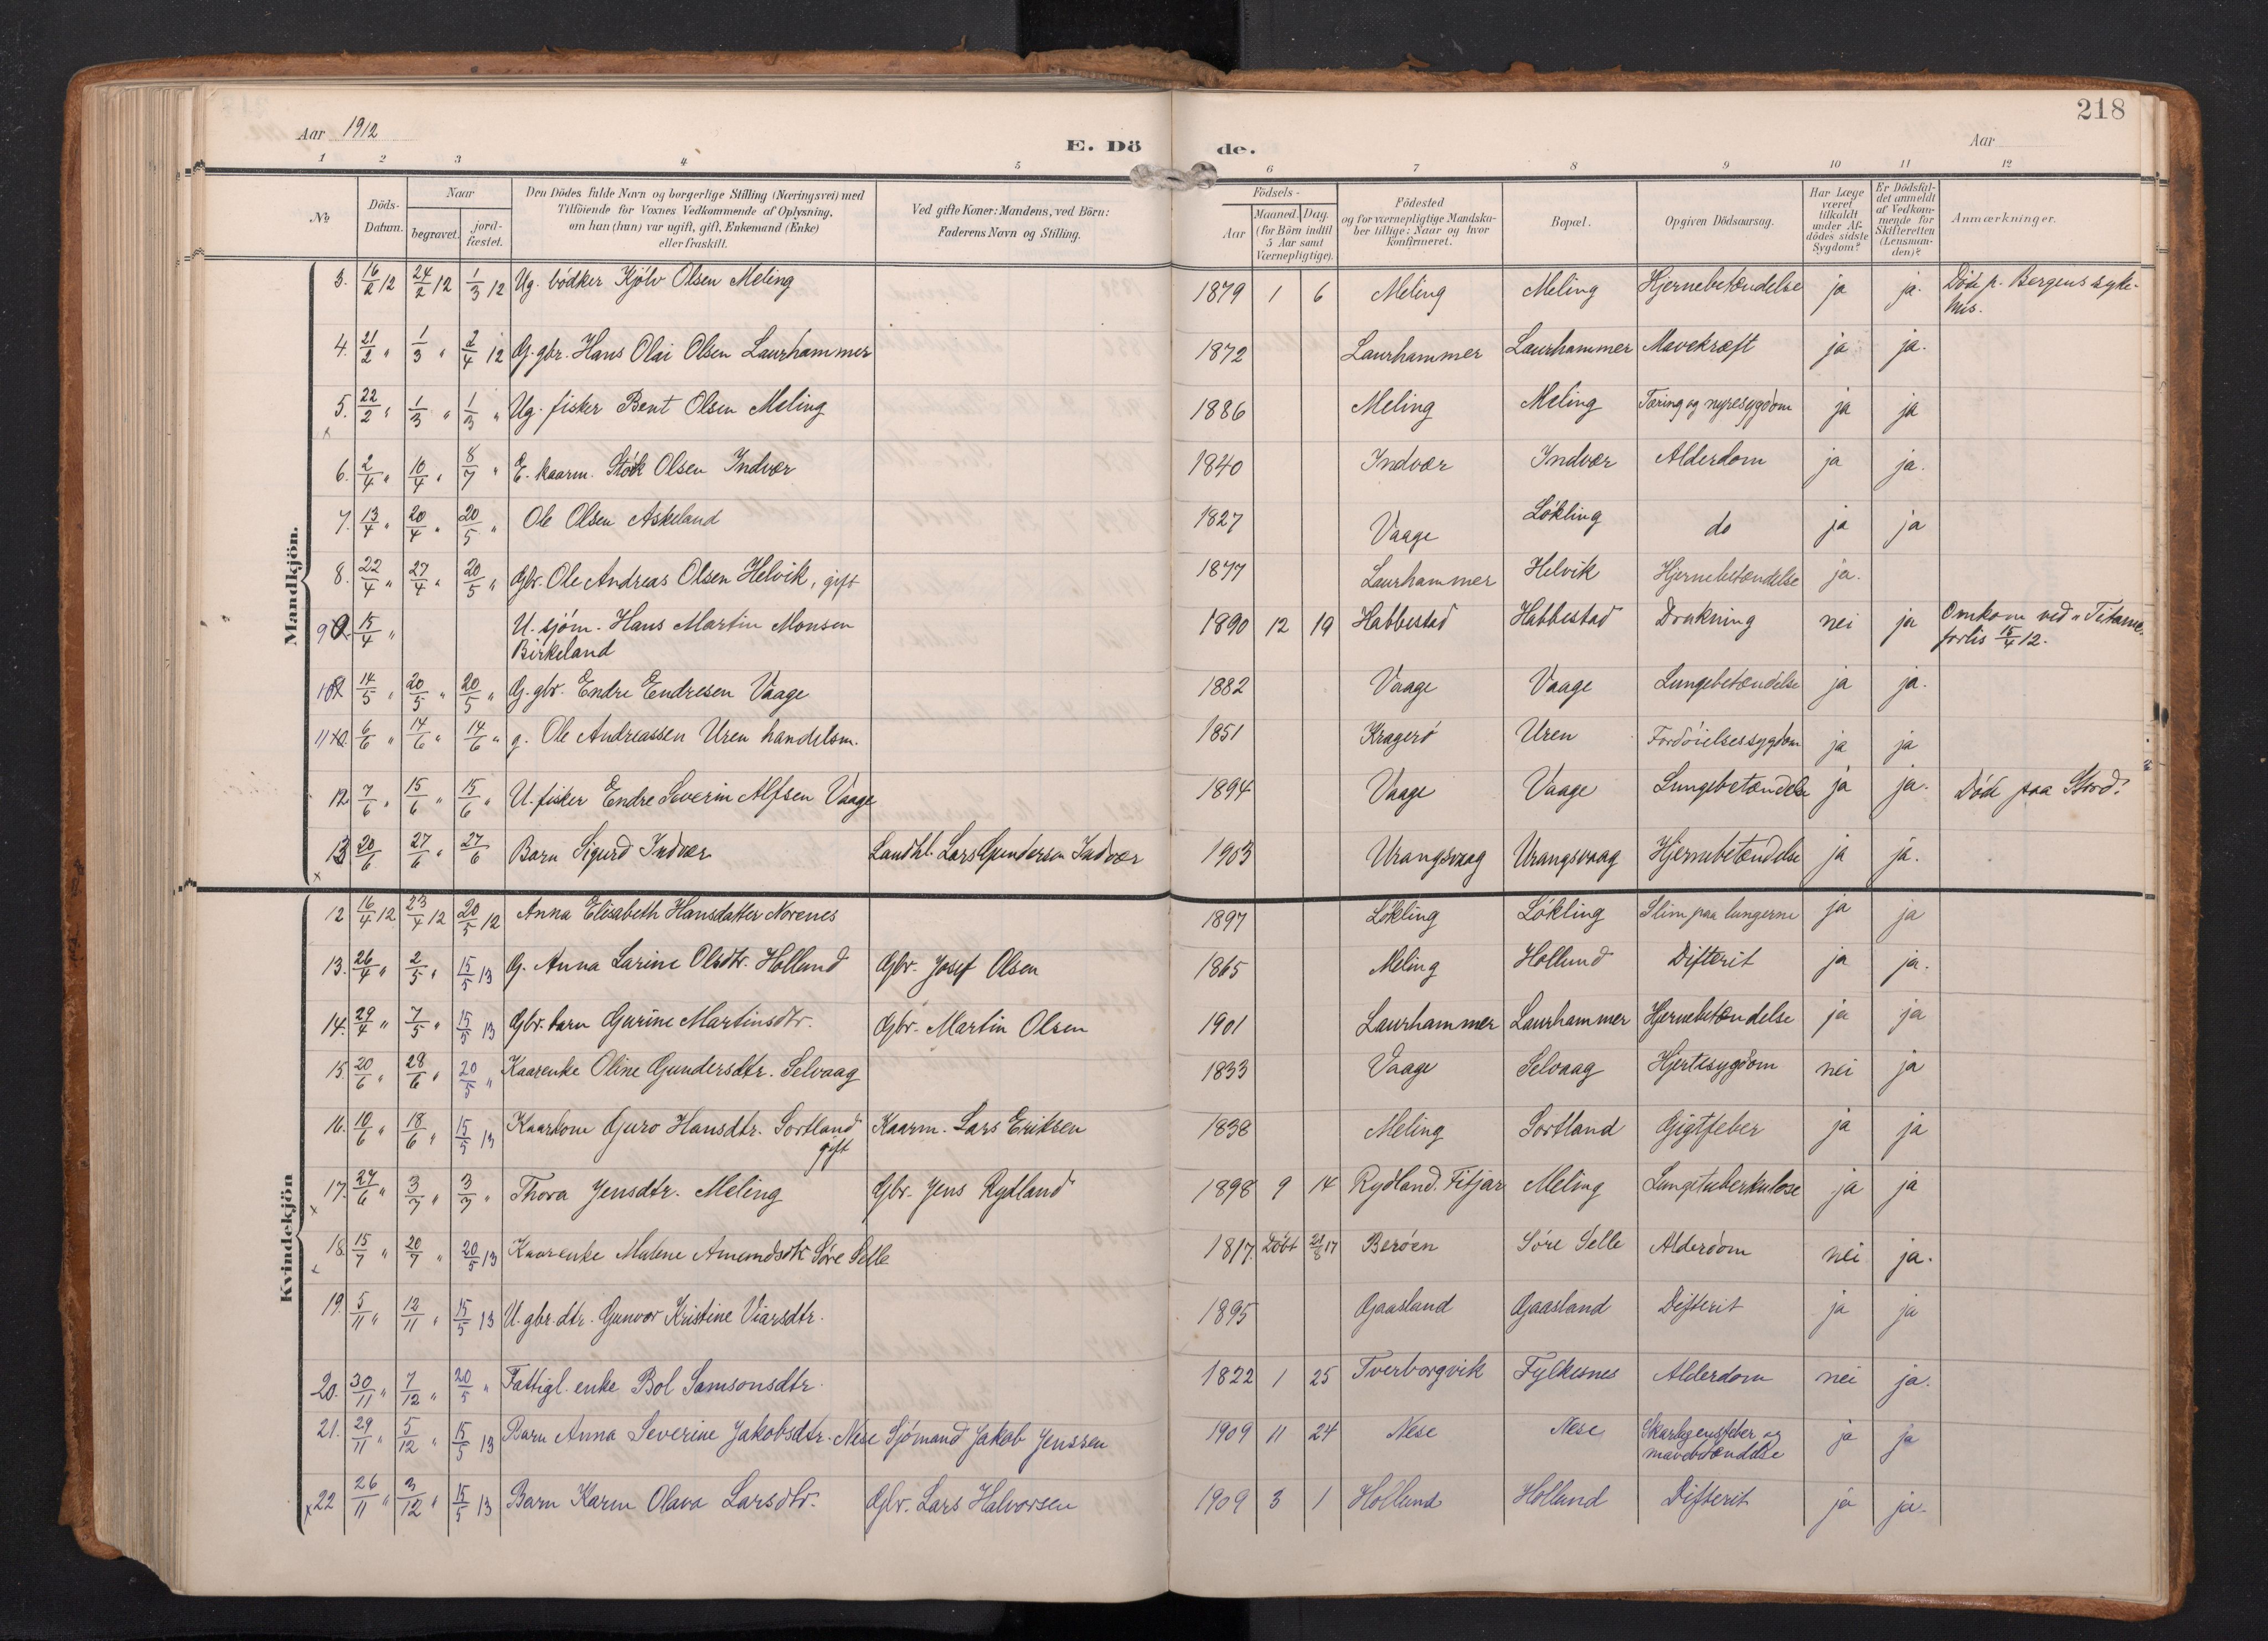 218
Aar 1912
E. Dö de.
Aar
1 2 3 4 5 6 7 8 9 10 11 12
No
Döds-Datum.
Naar
begravet.
jord-fæstet.
Den Dödes fulde Navn og borgerlige Stilling (Næringsvei) med
Tilföiende for Voxnes Vedkommende af Oplysning,
om han (hun) var ugift, gift, Enkemand (Enke)
eller fraskilt.
Ved gifte Koner: Mandens, ved Börn:
Faderens Navn og Stilling.
Födsels-
Aar
Maaned. Dag.
(for Börn indtil
5 Aar samt
Værnepligtige).
Födested
og for værnepligtige Mandska-
ber tillige: Naar og hvor
konfirmeret.
Bopæl.
Opgiven Dödsaarsag.
Har Læge
været
tilkaldt
under Af-
dödes sidste
Sygdom?
Er Dödsfal-
det anmeldt
af Vedkom-
mende for
Skifteretten
(Lensman-
den)?
Anmærkninger.
Mandkjön.
3. 16/2 12 24/2 12 1/3 12 Ug. bödker Kjölv Olsen Meling 1879 1 6 Meling Meling Hjernebetændelse ja ja. Döde p. Bergens syke-
hus.
4. 21/2 " 1/3 " 2/4 12 G. gbr. Hans Olai Olsen Laurhammer 1872 Laurhammer Laurhammer Mavekræft ja ja.
5. 22/2 " 1/3 " 1/3 " Ug. fisker Bent Olsen Meling 1886 Meling Meling Tæring og nyresygdom ja ja
x
6. 2/4 " 10/4 " 8/7 " E. kaarm. Störk Olsen Indvær 1840 Indvær Indvær Alderdom ja ja.
7. 13/4 " 20/4 " 20/5 " Ole Olsen Askeland 1827 Vaage Lökling do ja ja
8. 22/4 " 27/4 " 20/5 " Gbr. Ole Andreas Olsen Helvik, gift 1877 Laurhammer Helvik Hjernebetændelse ja.
9 15/4 " U. sjöm. Hans Martin Monsen 1890 12 19 Habbestad Habbestad Drukning nei ja Omkom ved "Titanic"
Birkeland forlis 15/4 12.
10 14/5 " 20/5 " 20/5 " G. gbr. Endre Endresen Vaage 1882 Vaage Vaage Lungebetændelse ja ja.
11 6/6 " 14/6 " 14/6 " g. Ole Andreassen Uren handelsm. 1851 Kragerö Uren Fordöielsessygdom ja ja
12 7/6 " 15/6 " 15/6 " U. fisker Endre Severin Alfsen Vaage 1894 Vaage Vaage Lungebetændelse ja ja. Döde paa Stord.
13 20/6 27/6 " 27/6 Barn Sigurd Indvær Landhl. Lars Gundersen Indvær 1903 Urangsvaag Urangsvaag Hjernebetændelse ja ja.
x
Kvindekjön
12 16/4 12 23/4 12 20/5 12 Anna Elisabeth Hansdatter Norenes 1897 Lökling Lökling Slim paa lungerne ja ja
13. 26/4 " 2/5 " 15/5 13 G. Anna Larine Olsdtr. Hollund Gbr. Josef Olsen 1865 Meling Hollund Difterit ja ja.
14. 29/4 " 7/5 " 15/5 13 Gbr. barn Gurine Martinsdtr. Gbr. Martin Olsen 1901 Laurhammer Laurhammer Hjernebetændelse ja ja
15. 20/6 " 28/6 " 20/5 " Kaarenke Oline Gundersdtr. Selvaag 1833 Vaage Selvaag Hjertesygdom nei ja
16. 10/6 " 18/6 " 15/5 13 Kaarkone Guro Hansdtr. Sortland Kaarm. Lars Eriksen 1838 Meling Sortland Gigtfeber ja ja
gift
17. 27/6 " 3/7 " 3/7 " Thora Jensdtr. Meling Gbr. Jens Rydland 1898 9 14 Rydland. Fitjar Meling Lungetuberkulose ja ja
x
18. 15/7 " 20/7 " 20/5 13 Kaarenke Malene Amundsdtr Söre Selle 1817. Döbt 21/8 17 Beröen Söre Selle Alderdom nei ja.
x
19. 5/11 " 12/11 " 15/5 13 U. gbr. dtr. Gunvor Kristine Viarsdtr. 1895 Gaasland Gaasland Difterit ja ja
20. 30/11 " 7/12 " 20/5 " Fattigl. enke Bol Samsonsdtr. 1822 1 25 Tverborgvik Fylkesnes Alderdom nei ja.
21. 29/11 " 5/12 " 15/5 13 Barn Anna Severine Jakobsdtr. Nese Sjömand Jakob Jenssen 1909 11 24 Nese Nese Skarlagensfeber og ja ja
mavebetændelse
x 22 26/11 " 3/12 " 15/5 13 Barn Karen Olava Larsdtr. Gbr. Lars Halvorsen 1909 3 1 Hollund Hollund Difterit ja ja.